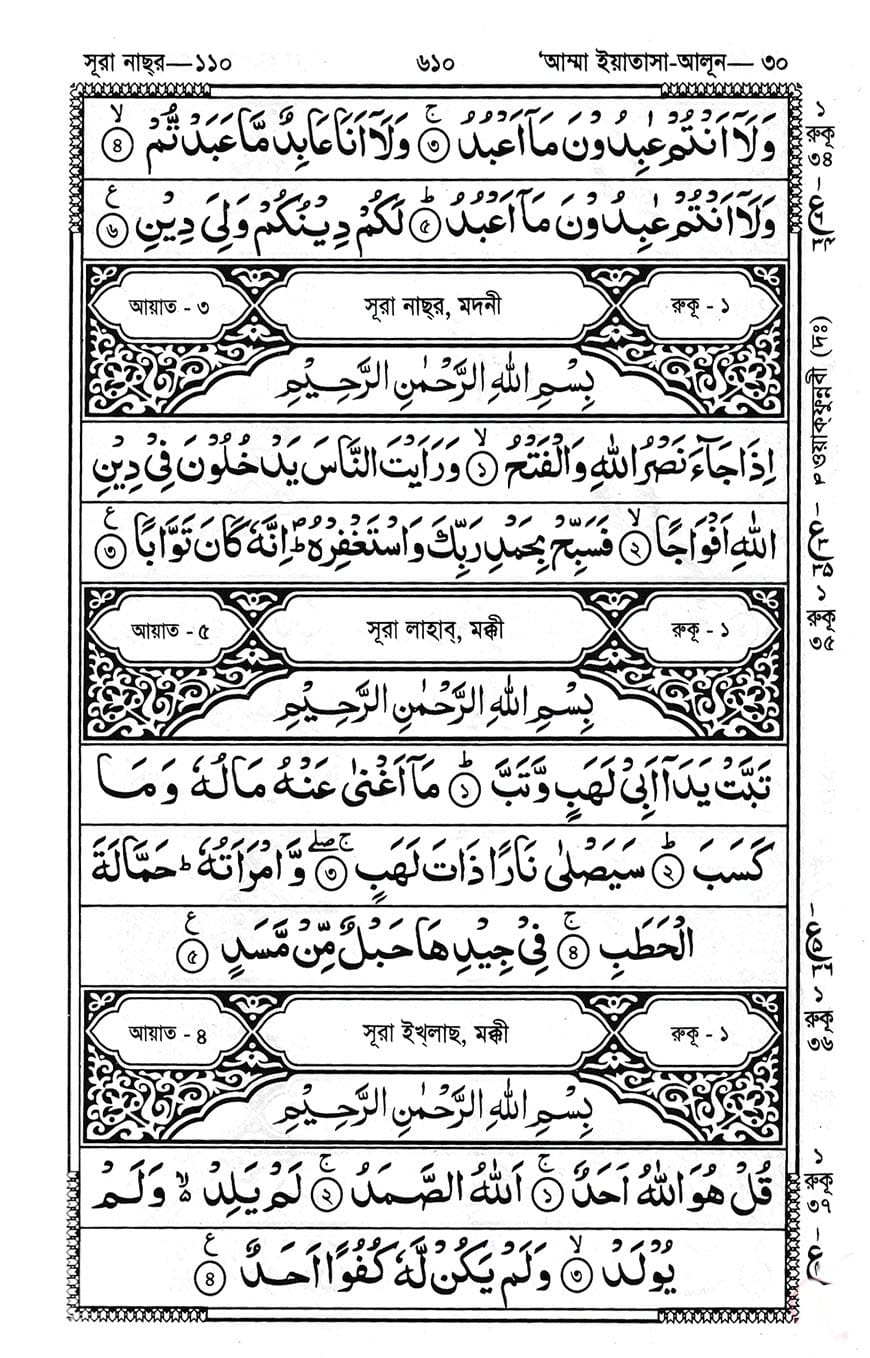 সূরা নাছ্‌র—১১০ ৬১০ 'আম্মা ইয়াতাসা-আলূন— ৩০
وَلَآ اَنْتُمْ عٰبِدُوْنَ مَآ اَعْبُدُ ۚ ৩ وَلَآ اَنَا عَابِدٌ مَّا عَبَدْتُّمْ ۙ ৪
وَلَآ اَنْتُمْ عٰبِدُوْنَ مَآ اَعْبُدُ ؕ ৫ لَكُمْ دِيْنُكُمْ وَلِيَ دِيْنِ ৬ ع
১
রুকূ
৩৪
আয়াত - ৩ সূরা নাছ্‌র, মদনী রুকূ - ১
بِسْمِ اللهِ الرَّحْمٰنِ الرَّحِيْمِ
اِذَا جَآءَ نَصْرُ اللهِ وَالْفَتْحُ ۙ ১ وَرَاَيْتَ النَّاسَ يَدْخُلُوْنَ فِيْ دِيْنِ
اللهِ اَفْوَاجًا ۙ ২ فَسَبِّحْ بِحَمْدِ رَبِّكَ وَاسْتَغْفِرْهُ ؕ اِنَّهٗ كَانَ تَوَّابًا ৩ ع
ওয়াক্‌ফুন্নবী (দঃ)
১
রুকূ
৩৫
আয়াত - ৫ সূরা লাহাব্‌, মক্কী রুকূ - ১
بِسْمِ اللهِ الرَّحْمٰنِ الرَّحِيْمِ
تَبَّتْ يَدَآ اَبِيْ لَهَبٍ وَّتَبَّ ؕ ১ مَآ اَغْنٰى عَنْهُ مَالُهٗ وَمَا
كَسَبَ ؕ ২ سَيَصْلٰى نَارًا ذَاتَ لَهَبٍ ۚۖ ৩ وَّامْرَاَتُهٗ ؕ حَمَّالَةَ
الْحَطَبِ ۚ ৪ فِيْ جِيْدِهَا حَبْلٌ مِّنْ مَّسَدٍ ৫ ع
১
রুকূ
৩৬
আয়াত - ৪ সূরা ইখ্‌লাছ, মক্কী রুকূ - ১
بِسْمِ اللهِ الرَّحْمٰنِ الرَّحِيْمِ
قُلْ هُوَ اللهُ اَحَدٌ ۚ ১ اَللهُ الصَّمَدُ ۚ ২ لَمْ يَلِدْ ۙ۬ وَلَمْ
يُوْلَدْ ۙ ৩ وَلَمْ يَكُنْ لَّهٗ كُفُوًا اَحَدٌ ৪ ع
১
রুকূ
৩৭